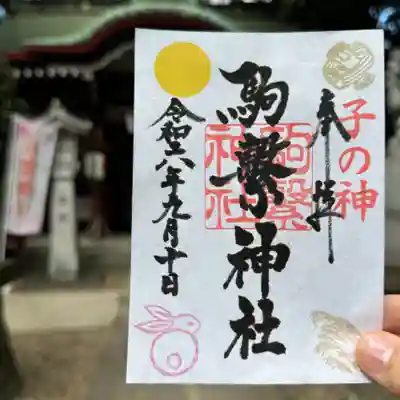 子の神
奉拝
駒繋神社
駒繋
神社
令和六年九月十日